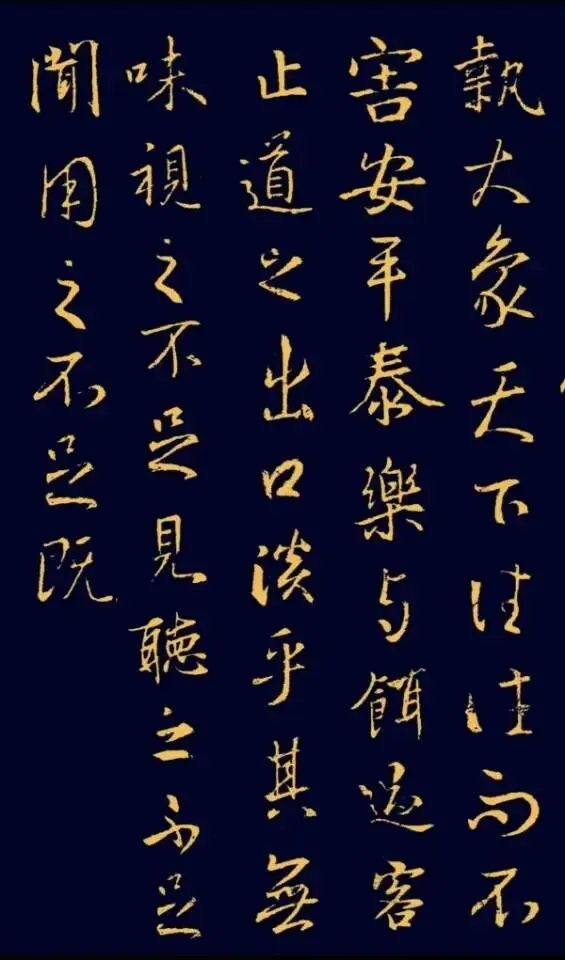 執大象天下往往而不
害安平泰樂与餌過客
止道之出口淡乎其無
味視之不足見聽之不足
聞用之不足既